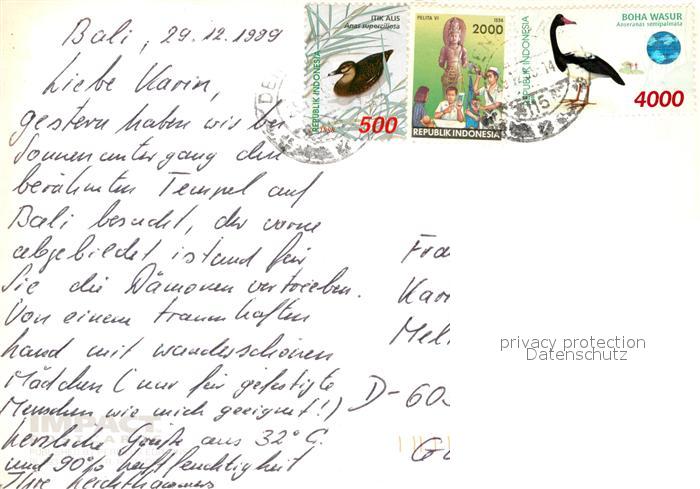 Bali, 29.12.1999
Liebe Karin,
gestern haben wir bei
Sonnenuntergang den
berühmten Tempel auf
Bali besucht, der vorne
abgebildet ist und für
Sie die Dämonen vertrieben.
Von einem traumhaften
Land mit wunderschönen
Mädchen (nur für gefestigte
Menschen wie mich geeignet!)
herzliche Grüße aus 32° C
und 90% Luftfeuchtigkeit
Ihre
ITIK ALIS
Anas superciliosa
REPUBLIK INDONESIA
1998
500
PELITA VI
1996
2000
REPUBLIK INDONESIA
BOHA WASUR
Anseranas semipalmata
REPUBLIK INDONESIA
4000
Fra
Kar
Mel
D-60
privacy protection
Datenschutz
IMPACT